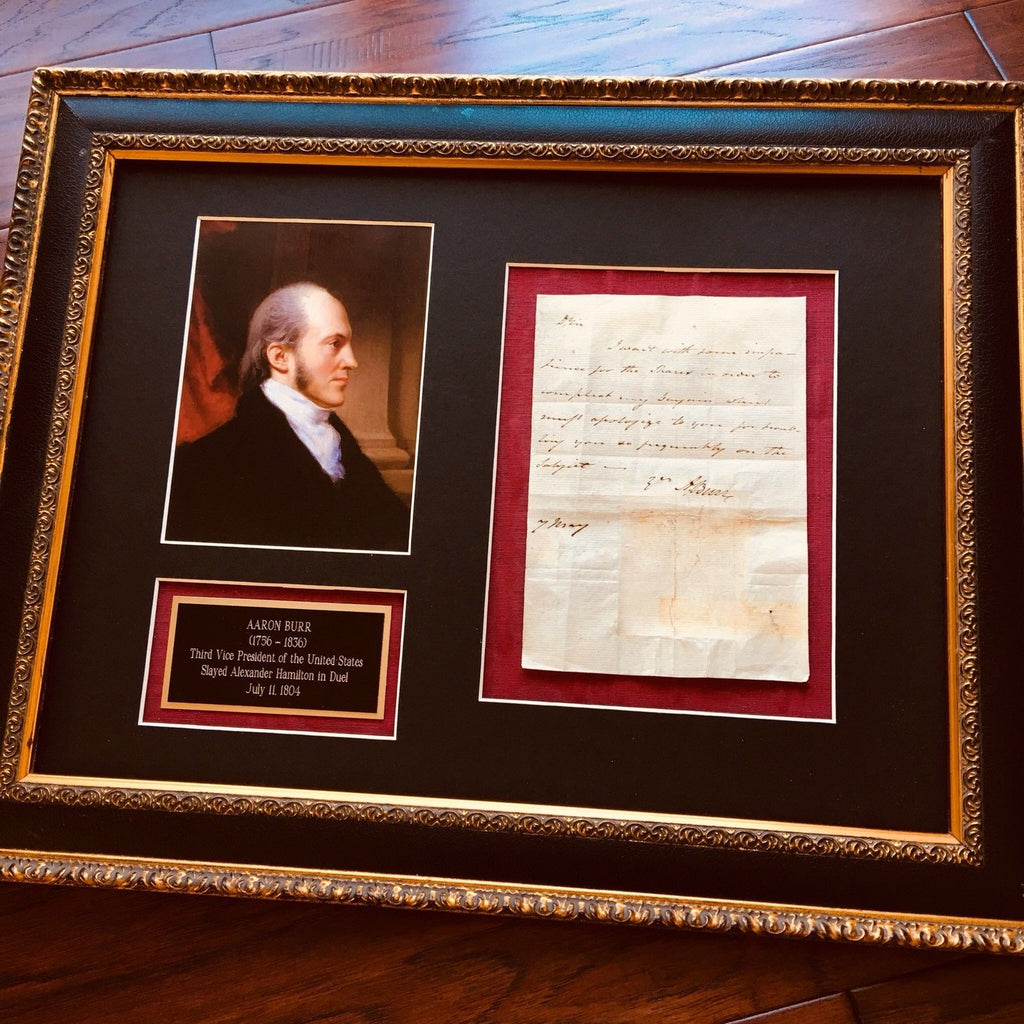 AARON BURR
(1756 – 1836)
Third Vice President of the United States
Slayed Alexander Hamilton in Duel
July 11, 1804
I wait with some impa-
tience for the Shares in order to
compleat my
must apologize to you for troub-
ling you so frequently on the
Subject —
A Burr
7 May